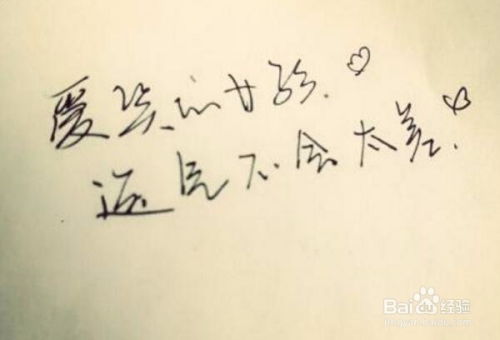 爱笑的女孩.
运气不会太差.
Baidu经验
jingyan.baidu.com